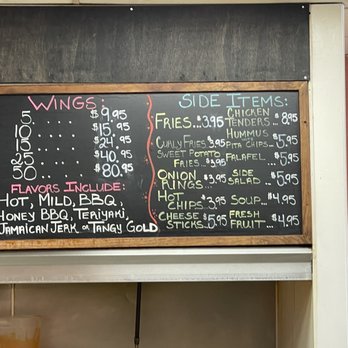 WINGS:
5 ..... $9.95
10 ..... $15.95
15 ..... $24.95
25 ..... $40.95
50 ..... $80.95
FLAVORS INCLUDE:
HOT, MILD, BBQ,
HONEY BBQ, TERIYAKI,
JAMAICAN JERK or TANGY GOLD
SIDE ITEMS:
FRIES..$3.95
CURLY FRIES $3.95
SWEET POTATO
FRIES... $3.95
ONION
RINGS.. $3.95
HOT
CHIPS.. $3.95
CHEESE
STICKS.. $5.95
CHICKEN
TENDERS.. $8.95
HUMMUS
WITH
PITA CHIPS.. $5.95
FALAFEL.. $5.95
SIDE
SALAD.. $5.95
SOUP.. $4.95
FRESH
FRUIT... $4.95